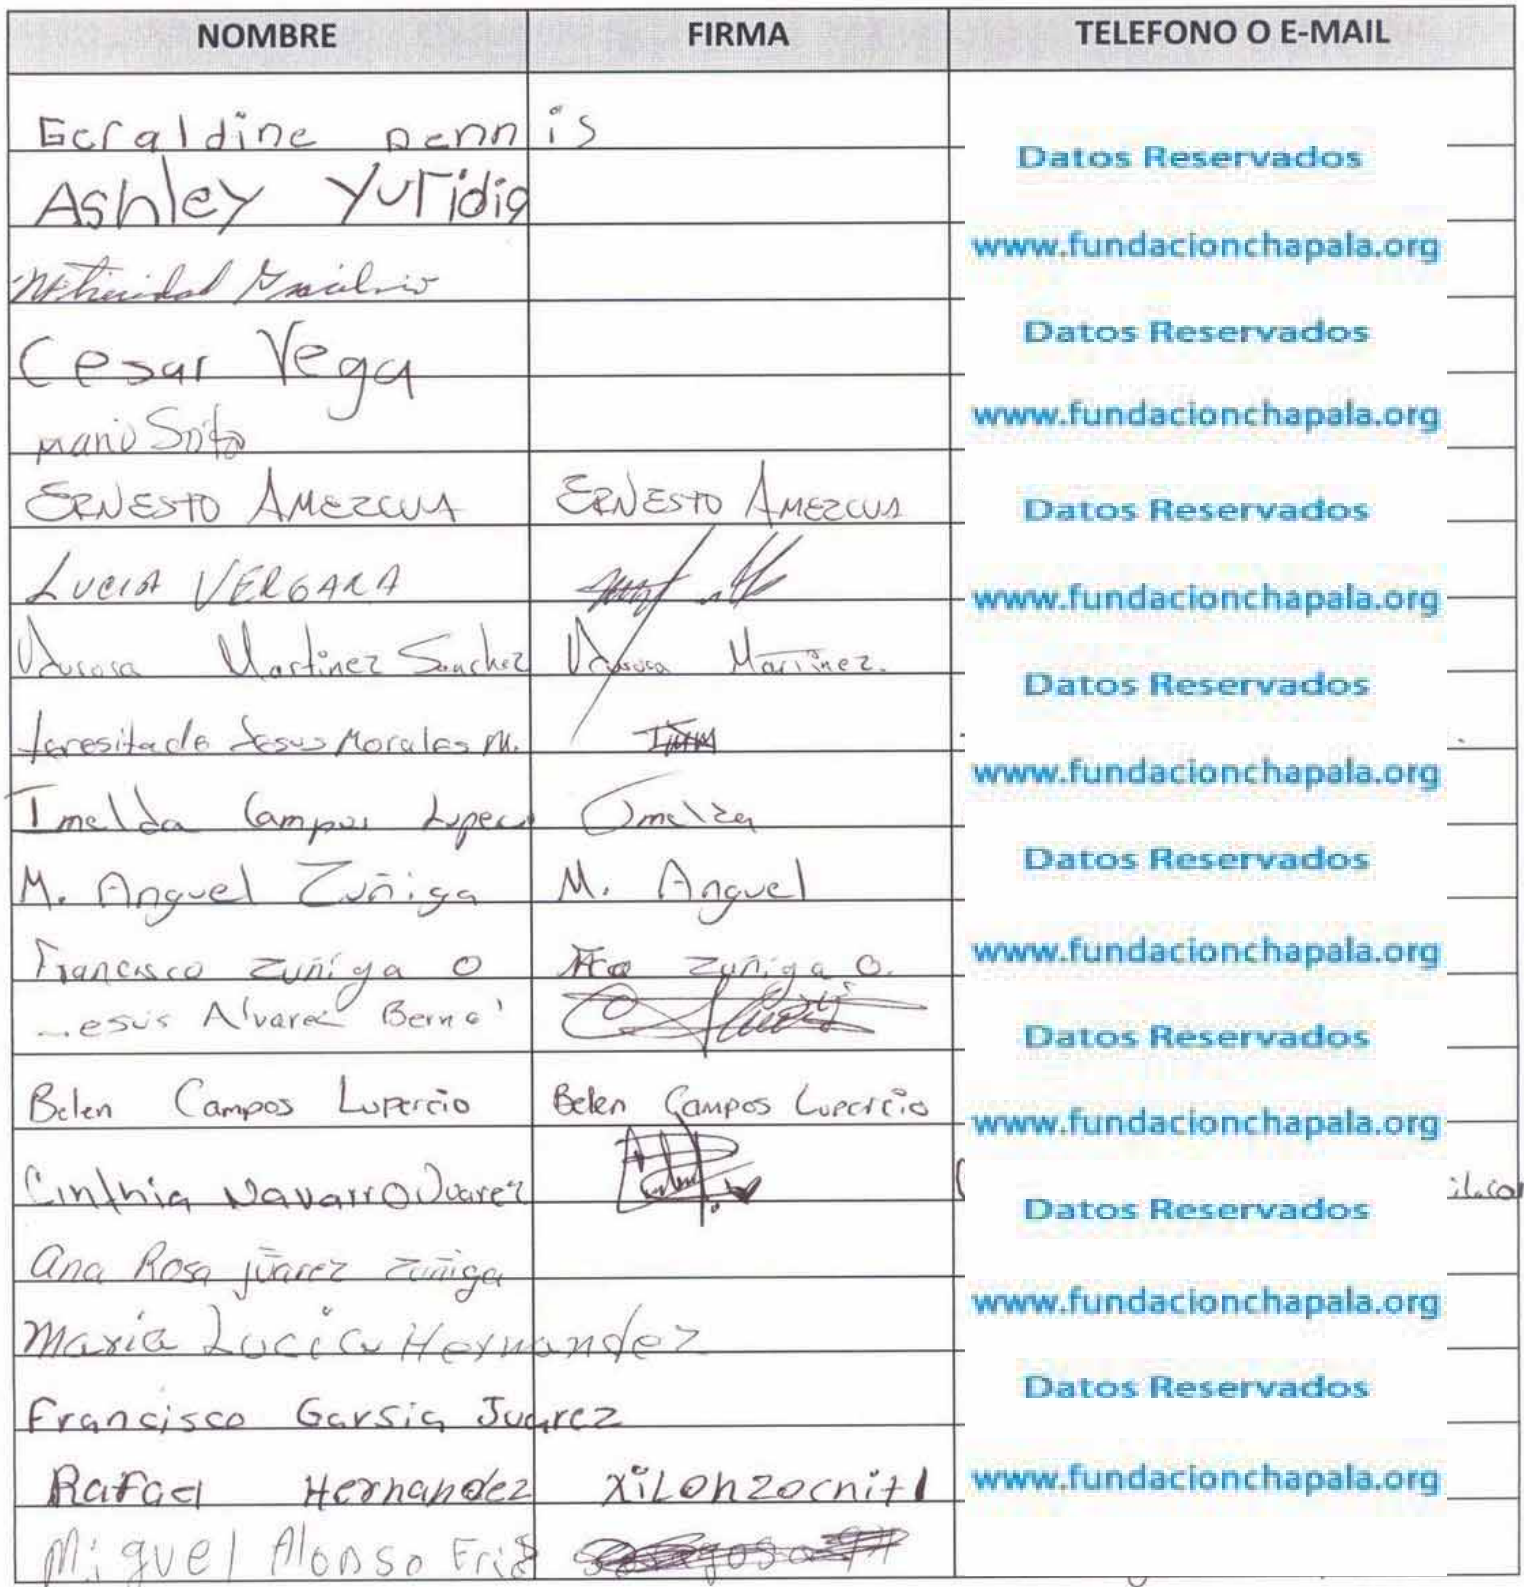 NOMBRE FIRMA TELEFONO O E-MAIL
Geraldine Dennis
Datos Reservados
Ashley Yuridia
www.fundacionchapala.org
Natividad
Datos Reservados
Cesar Vega
www.fundacionchapala.org
Mario Soto
ERNESTO AMEZCUA ERNESTO AMEZCUA Datos Reservados
LUCIA VERGARA www.fundacionchapala.org
Martinez Sanchez Martinez.
Datos Reservados
teresita de Jesus Morales M. TJMM
www.fundacionchapala.org
Imelda Campos Luperc Imelda
Datos Reservados
M. Anguel Zuñiga M. Anguel
Francisco zuñiga O Fco zuñiga O. www.fundacionchapala.org
esus Alvarez Berna
Datos Reservados
Belen Campos Lupercio Belen Campos Lupercio www.fundacionchapala.org
Cinthia Navarro Juarez Datos Reservados il.com
ana Rosa júarez zuñiga
www.fundacionchapala.org
Maria Lucia Hernandez
Datos Reservados
Francisco Garsia Juarez
Rafael Hernandez XiLOnzocnitl www.fundacionchapala.org
Miguel Alonso